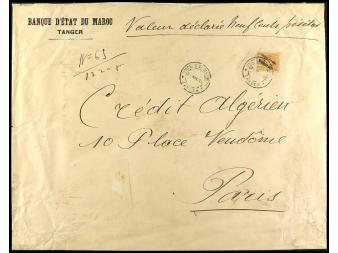 BANQUE D'ÉTAT DU MAROC
TANGER
Valeur déclarée Neuf Cents pésétas
Nº 63
Crédit Algérien
10 Place Vendôme
Paris